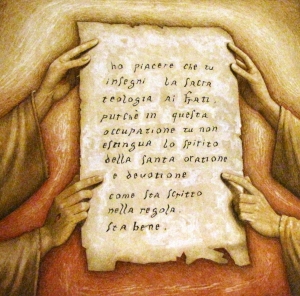 ho piacere che tu
insegni la sacra
teologia ai frati,
purchè in questa
occupazione tu non
estingua lo spirito
della santa oratione
e devotione
come sta scritto
nella regola.
sta bene.